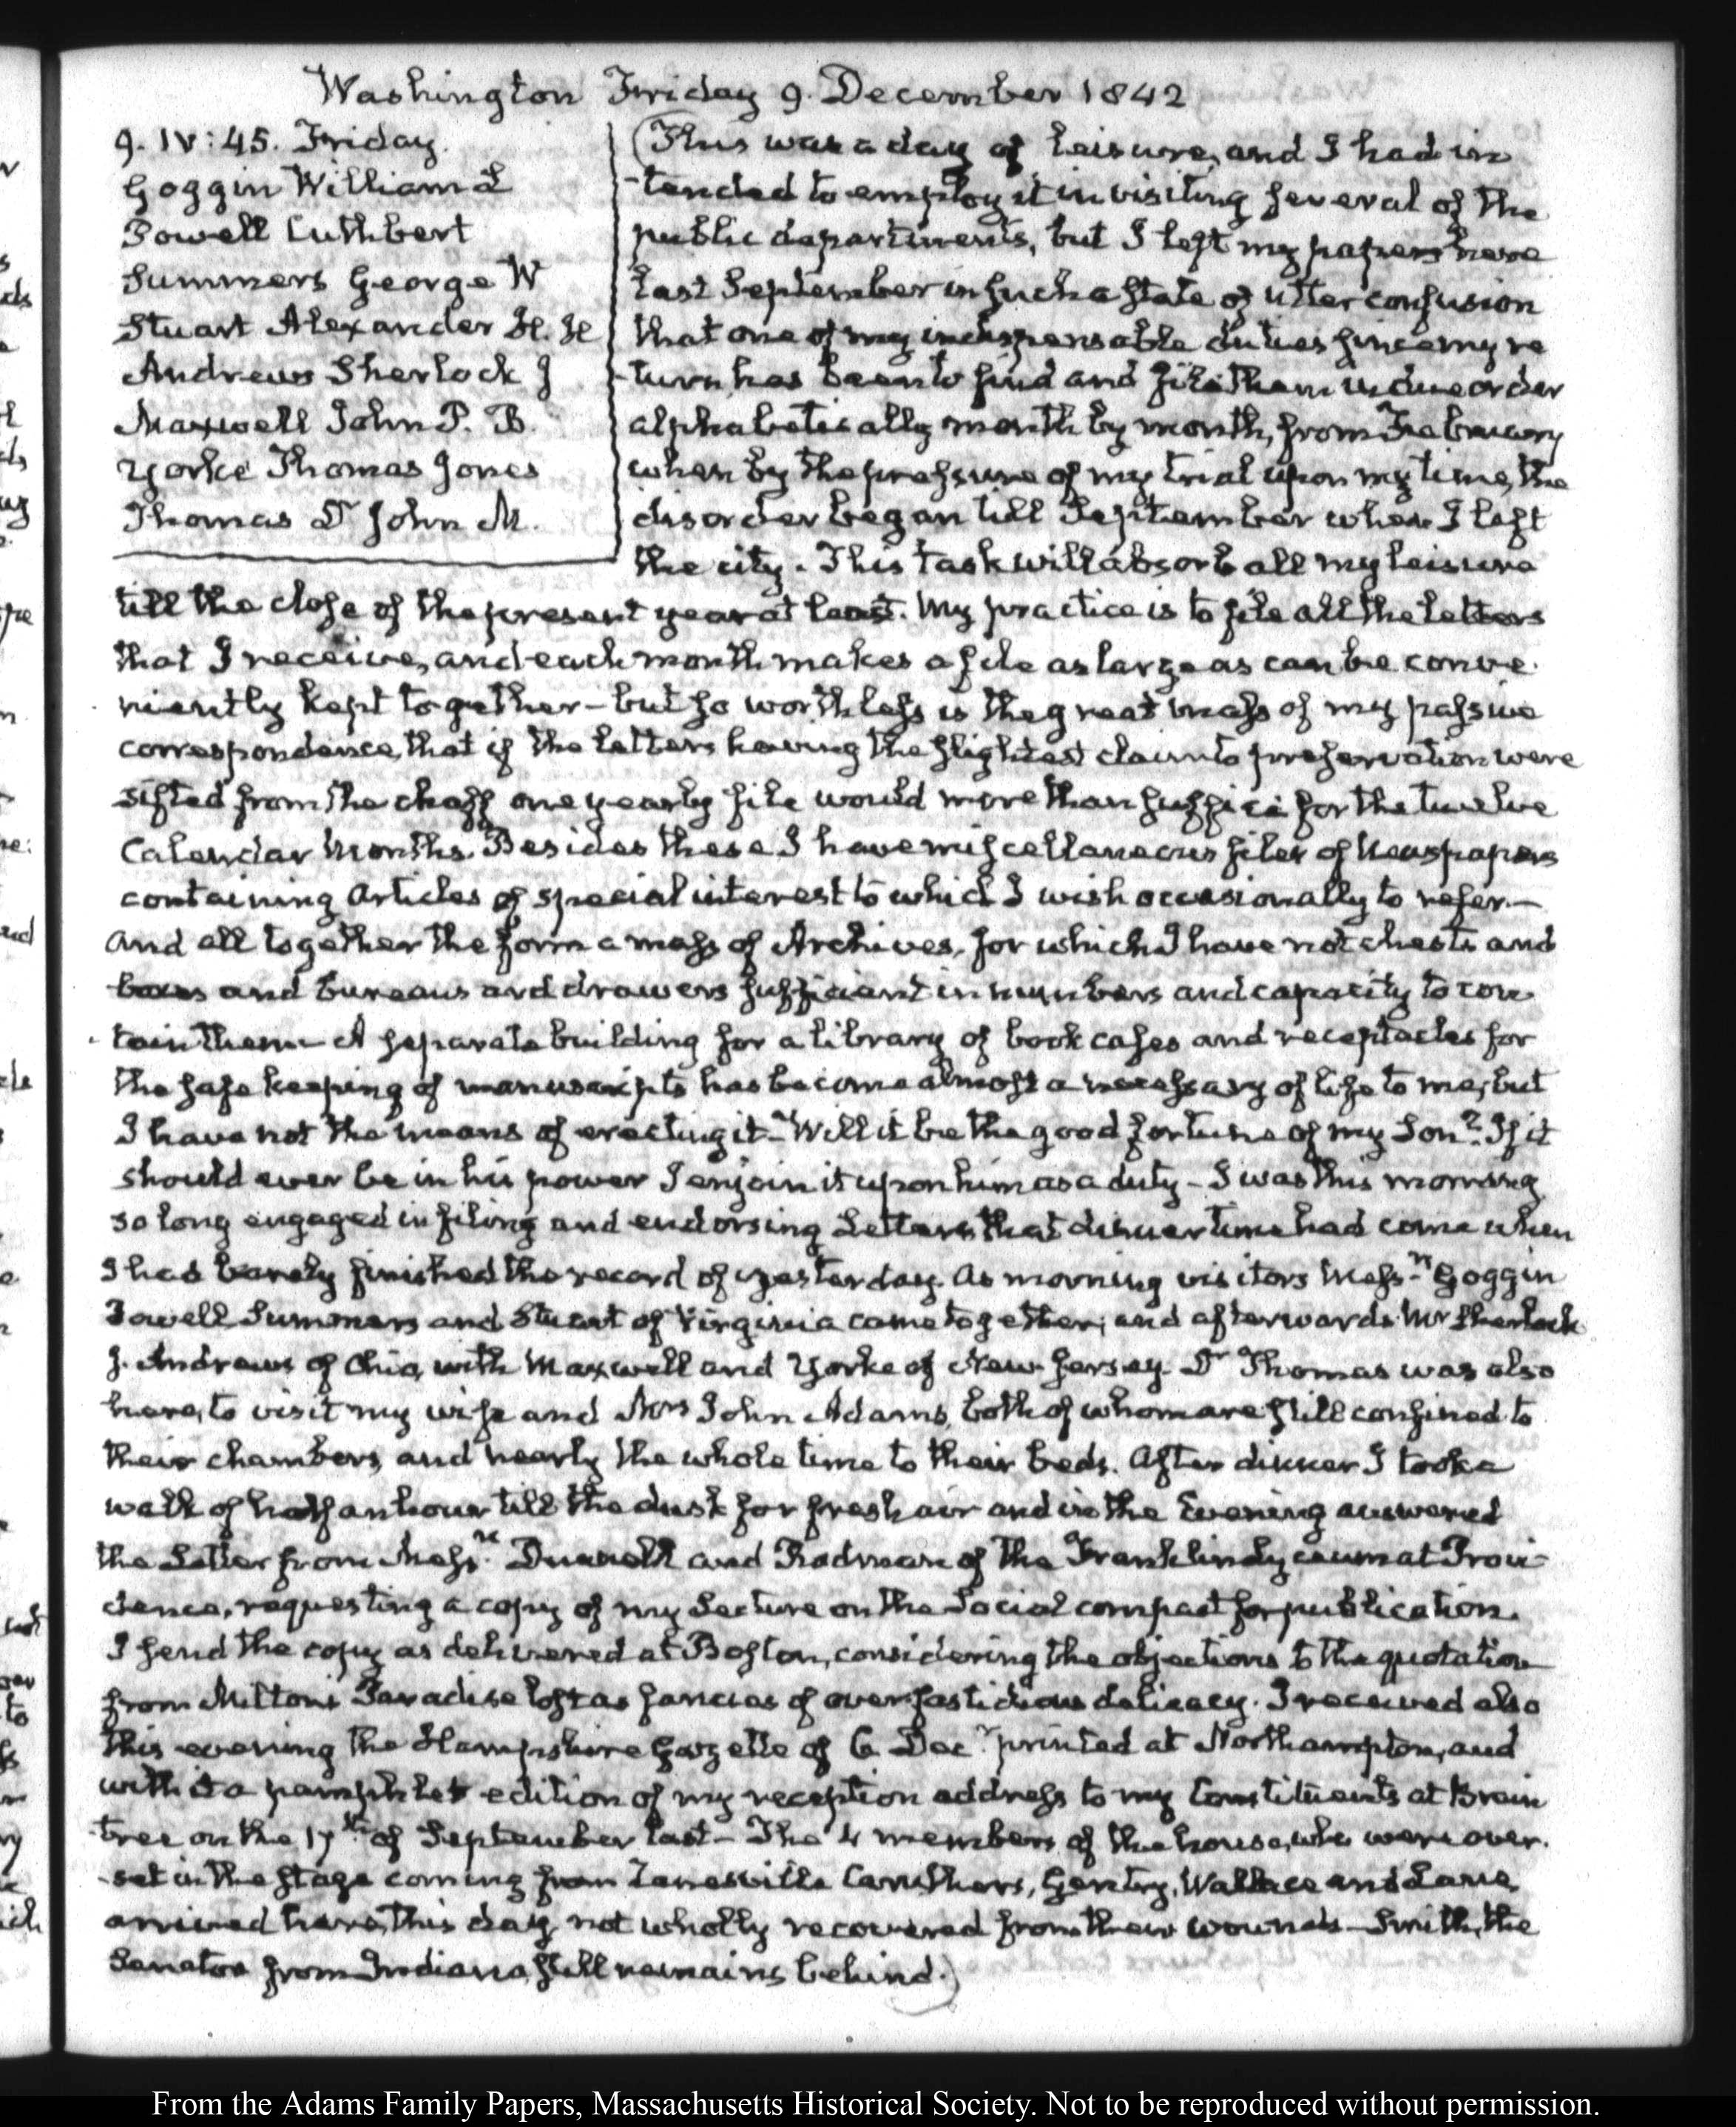 Washington Friday 9. December 1842
9. IV:45. Friday.
Goggin William L
Powell Cuthbert
Summers George W
Stuart Alexander H. H
Andrews Sherlock J
Maxwell John P. B.
Yorke Thomas Jones
Thomas Dr John M.
(This was a day of leisure, and I had in
-tended to employ it in visiting several of the
public departments, but I left my papers here
last September in such a state of utter confusion
that one of my indispensable duties since my re
-turn, has been to find and file them in due order
alphabetically month by month, from February
when by the pressure of my trial upon my time, the
disorder began till September when I left
the city. This task will absorb all my leisure
till the close of the present year at least. My practice is to file all the letters
that I receive, and each month makes a file as large as can be conve
niently kept together – but so worthless is the great mass of my passive
correspondence, that if the letters having the slightest claim to preservation were
sifted from the chaff one yearly file would more than suffice for the twelve
Calendar Months. Besides these I have miscellaneous files of Newspapers
containing Articles of special interest to which I wish occasionally to refer. –
and all together the form a mass of Archives, for which I have not chests and
boxes and bureaus and drawers sufficient in numbers and capacity to con
tain them – A separate building for a library of book cases and receptacles for
the safe keeping of manuscripts has become almost a necessary of life to me, but
I have not the means of erecting it – Will it be the good fortune of my Son? If it
should ever be in his power I enjoin it upon him as a duty – I was this morning
so long engaged in filing and endorsing Letters that dinner time had come when
I had barely finished the record of yesterday. As morning visitors Messrs Goggin
Powell Summers and Stuart of Virginia came together, and afterwards Mr Sherlock
J. Andrews of Ohio, with Maxwell and Yorke of New Jersey. Dr Thomas was also
here, to visit my wife and Mrs John Adams, both of whom are still confined to
their chambers, and nearly the whole time to their beds. After dinner I took a
walk of half an hour till the dusk for fresh air and in the Evening answered
the Letter from Messrs and Rodman of the Franklin Lyceum at Provi-
dence, requesting a copy of my Lecture on the Social compact for publication.
I send the copy as delivered at Boston, considering the objections to the quotation
from Milton's Paradise lost as fancies of overfastidious delicacy. I received also
this evening the Hampshire Gazette of 6. Decr printed at Northampton, and
with it a pamphlet edition of my reception address to my Constituents at Brain
tree on the 17th of September last – The 4 members of the house, who were over.
-set in the stage coming from Zanesville Caruthers, Gentry, Wallace and Lane
arrived here, this day not wholly recovered from their wounds – Smith, the
Senator from Indiana, still remains behind.)
From the Adams Family Papers, Massachusetts Historical Society. Not to be reproduced without permission.